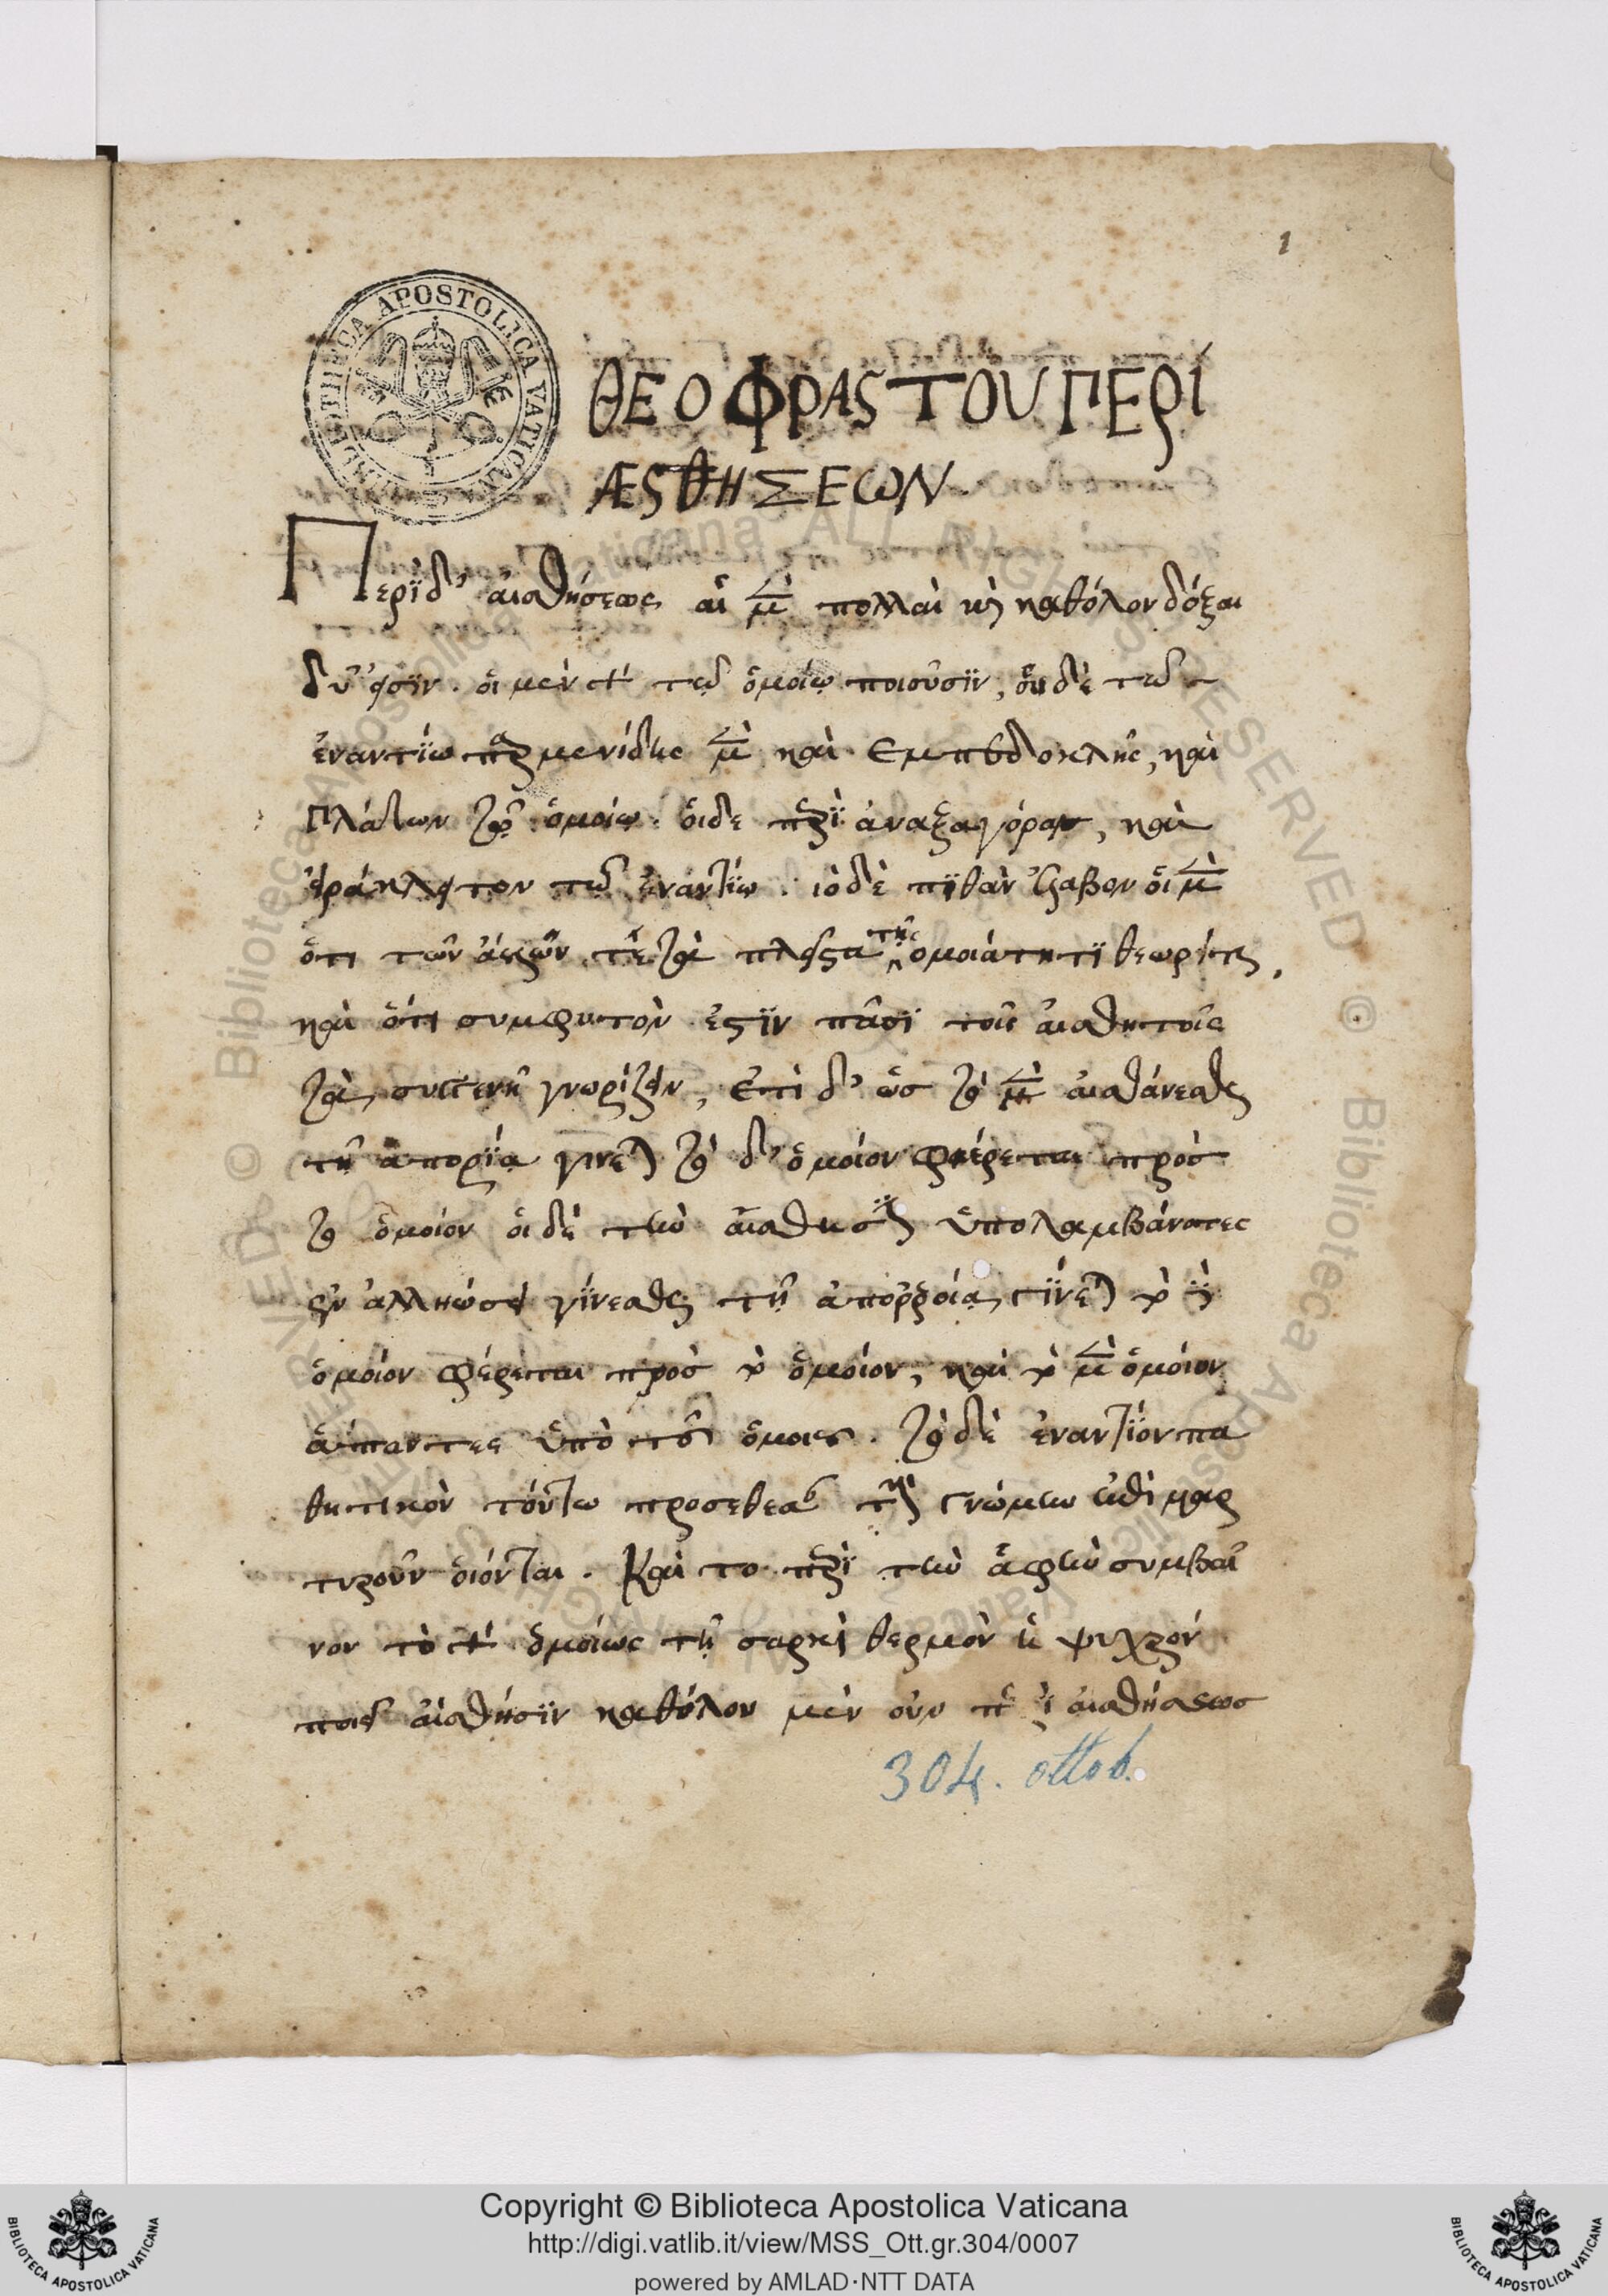 1
BIBLIOTHECA APOSTOLICA VATICANA
ΘΕΟΦΡΑΣΤΟΥ ΠΕΡΙ
ΑΕΣΘΗΣΕΩΝ
Περὶ δ' αἰσθήσεως αἱ μὲν πολλαὶ καὶ καθόλου δόξαι
δύ' εἰσὶν. οἱ μὲν τῷ ὁμοίῳ ποιοῦσιν, οἱ δὲ τῷ
ἐναντίω παρμενίδης μὲν καὶ Εμπεδοκλῆς, καὶ
Πλάτων τῷ ὁμοίῳ. οἱ δε περὶ ἀναξαγόραν, καὶ
ἡράκλειτον τῷ ἐναντίω. τὸ δὲ πιθανὸν ἔλαβον οἱ μὲν
ὅτι τῶν τε τὰ πλεῖστα τῇ ομοιότητι θεωρεῖται,
καὶ ὅτι συμφυτὸν ἐστὶν πᾶσι τοῖς αἰσθητοῖς
τὰ συγγενῆ γνωρίζειν, ἔτι δ' ὡς τὸ μὲν αἰσθάνεσθαι
τῇ ἀπορίᾳ γίνεται τὸ δ' ὁμοίον φέρεται πρὸς
τὸ ὁμοίον οἱ δὲ τὴν αἴσθησιν ὑπολαμβάνοτες
ἐν ἀλλοιώσει γίνεσθαι τῇ ἀπορροίᾳ γίνεται τὸ
ὁμοίον φέρεται πρὸς τὸ ὁμοίον, καὶ τὸ μὲν ὁμοίον
ἅπαντες ὑπὸ τοῦ ὁμοίου. τὸ δὲ ἐναντίον πα
θητικὸν τούτω προσέθεσαν τὴν γνώμην ἐπὶ μαρ
τυροῦν οἴονται. Καὶ το περὶ τὴν ἁφὴν συμβαῖ
νον τὸ ὁμοίως τῇ σαρκὶ θερμὸν ἢ ψυχρόν
ποιεῖ αἰσθήσιν καθόλου μὲν οὖν περὶ αἰσθήσεως
304. ottob.
Copyright © Biblioteca Apostolica Vaticana
http://digi.vatlib.it/view/MSS_Ott.gr.304/0007
powered by AMLAD·NTT DATA
BIBLIOTECA APOSTOLICA VATICANA
BIBLIOTECA APOSTOLICA VATICANA